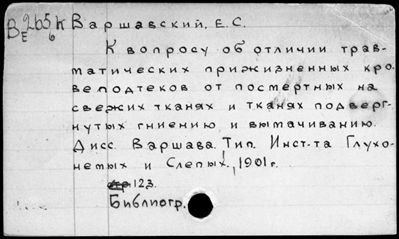 Ве 265к Варшавский, Е.С.
6
К вопросу об отличии трав-
матических прижизненных кро-
веподтеков от посмертных на
свежих тканях и тканях подверг-
нутых гниению и вымачиванию.
Дисс. Варшава. Тип. Инст-та Глухо-
немых и Слепых, 1901г.
123.
Библиогр.